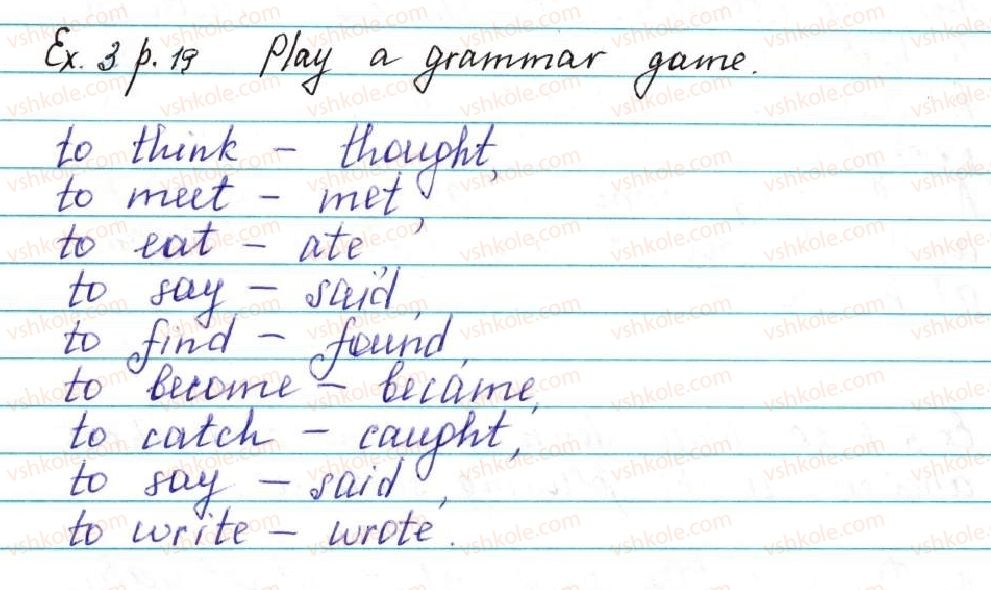 Ex. 3 p. 19 Play a grammar game.
to think – thought,
to meet – met,
to eat – ate,
to say – said,
to find – found,
to become – became,
to catch – caught,
to say – said,
to write – wrote.